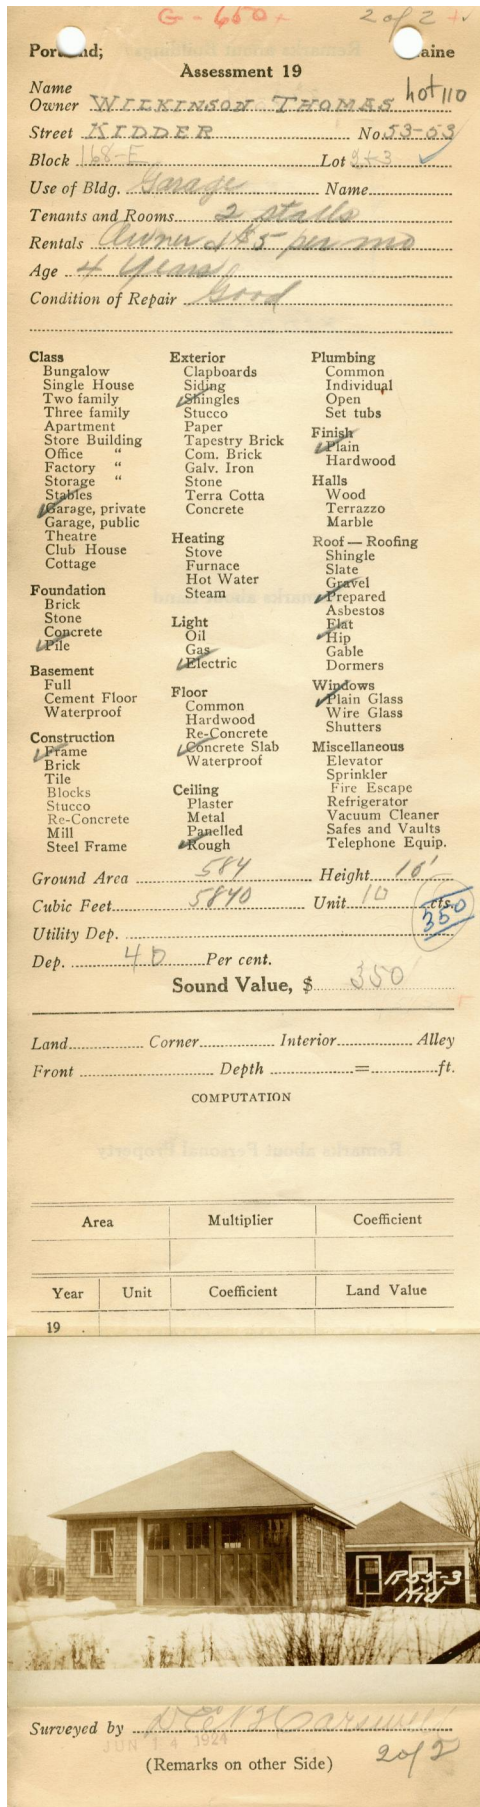 G - 650 +
2 of 2 +
Portland; Maine
Assessment 19
Name
Owner WILKINSON THOMAS hot 110
Street KIDDER No. 53-53
Block 168-E Lot 2+3
Use of Bldg. Garage Name
Tenants and Rooms 2 stalls
Rentals Owner + $5 per mo
Age 4 Years
Condition of Repair Good
Class
Bungalow
Single House
Two family
Three family
Apartment
Store Building
Office "
Factory "
Storage "
Stables
Garage, private
Garage, public
Theatre
Club House
Cottage
Foundation
Brick
Stone
Concrete
Pile
Basement
Full
Cement Floor
Waterproof
Construction
Frame
Brick
Tile
Blocks
Stucco
Re-Concrete
Mill
Steel Frame
Exterior
Clapboards
Siding
Shingles
Stucco
Paper
Tapestry Brick
Com. Brick
Galv. Iron
Stone
Terra Cotta
Concrete
Heating
Stove
Furnace
Hot Water
Steam
Light
Oil
Gas
Electric
Floor
Common
Hardwood
Re-Concrete
Concrete Slab
Waterproof
Ceiling
Plaster
Metal
Panelled
Rough
Plumbing
Common
Individual
Open
Set tubs
Finish
Plain
Hardwood
Halls
Wood
Terrazzo
Marble
Roof — Roofing
Shingle
Slate
Gravel
Prepared
Asbestos
Flat
Hip
Gable
Dormers
Windows
Plain Glass
Wire Glass
Shutters
Miscellaneous
Elevator
Sprinkler
Fire Escape
Refrigerator
Vacuum Cleaner
Safes and Vaults
Telephone Equip.
Ground Area 584 Height 10'
Cubic Feet 5840 Unit 10 cts.
350
Utility Dep.
Dep. 40 Per cent.
Sound Value, $ 350
Land Corner Interior Alley
Front Depth = ft.
COMPUTATION
Area Multiplier Coefficient
Year Unit Coefficient Land Value
19 .
R55-3
Kid
Surveyed by
JUN 14 1924
(Remarks on other Side) 2 of 2